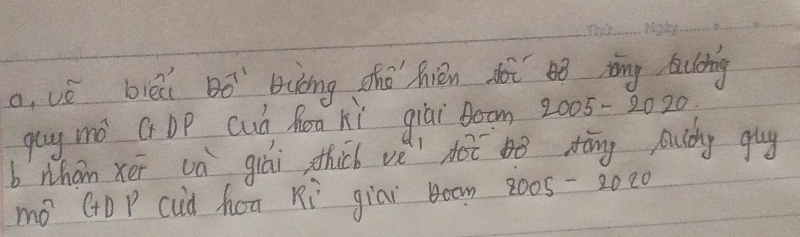 Thứ....... Ngày.......
a, vẽ biểu đồ đường thể hiện tốc độ tăng trưởng
quy mô GDP của hoa kì giai đoạn 2005 - 2020.
b nhận xét và giải thích về tốc độ tăng trưởng quy
mô GDP của hoa kì giai đoạn 2005 - 2020